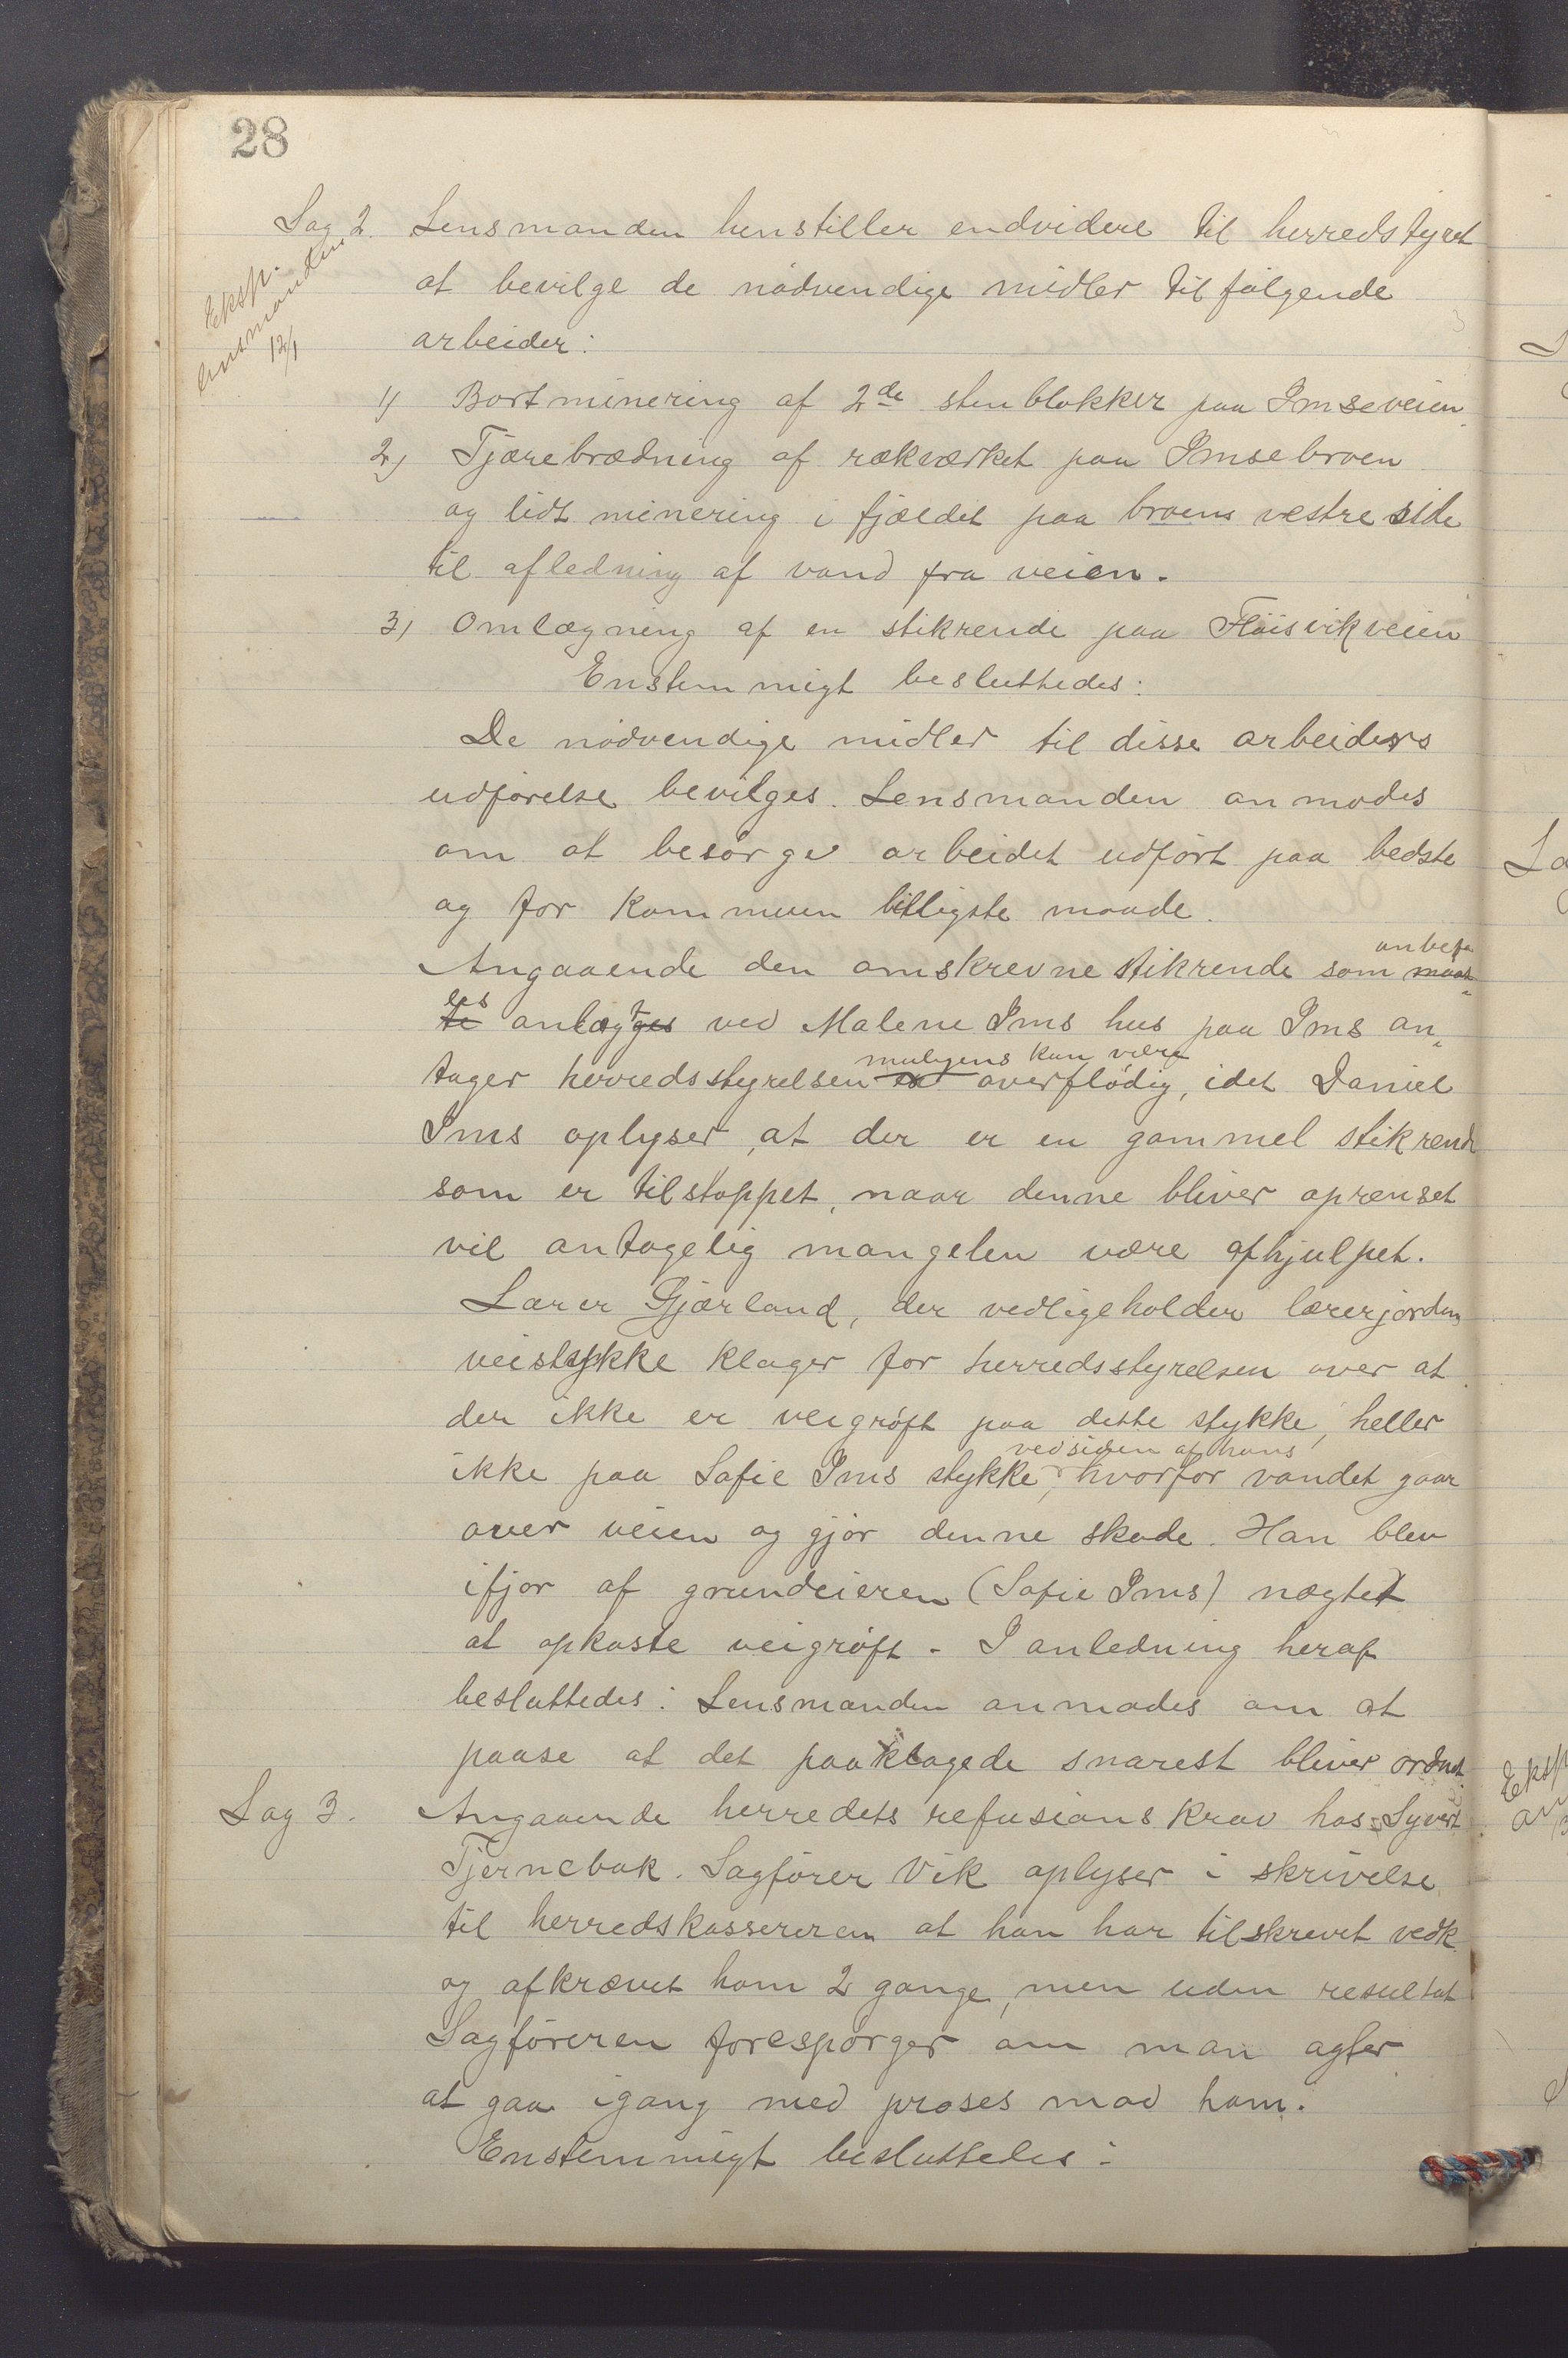 28
Sag 2. Lensmanden henstiller endvidere til herredstyret
Eksp.
lensmanden
12/1
at bevilge de nødvendige midler til følgende
arbeider:
1) Bortminering af 2de stenblokker paa Imseveien.
2) Tjærebrædning af rækværket paa Imsebroen
og lidt minering i fjældet paa broens vestre side
til afledning af vand fra veien.
3) Omlægning af en stikrende paa Fløisvikveien
Enstemmigt besluttedes:
De nødvendige midler til disse arbeiders
udførelse bevilges. Lensmanden anmodes
om at besørge arbeidet udført paa bedste
og for kommunen billigste maade.
anbefa
Angaaende den omskrevne stikrende som maat-
les
te anlagt ges ved Malene Ims hus paa Ims an-
muligens kan være
tager herredsstyrelsen er overflødig, idet Daniel
Ims oplyser, at der er en gammel stikrende
som er tilstoppet, naar denne bliver oprenset
vil antagelig mangelen være afhjulpet.
Lærer Gjærland, der vedligeholder lærerjordens
veistykke klager for herredsstyrelsen over at
der ikke er veigrøft paa dette stykke, heller
ved siden af hans
ikke paa Sofie Ims stykke, hvorfor vandet gaar
over veien og gjør denne skade. Han blev
ifjor af grundeieren (Sofie Ims) nægtet
at opkaste veigrøft. I anledning heraf
besluttedes: Lensmanden anmodes om at
paase at det paaklagede snarest bliver ordnet.
Sag 3. Angaaende herredets refusionskrav hos Syvert
Tjernebak. Sagfører Vik oplyser i skrivelse
til herredskassereren at han har tilskrevet vedk.
og afkrævet ham 2 gange, men uden resultat
Sagføreren forespørger om man agter
at gaa igang med proses mod ham.
Enstemmigt besluttedes: